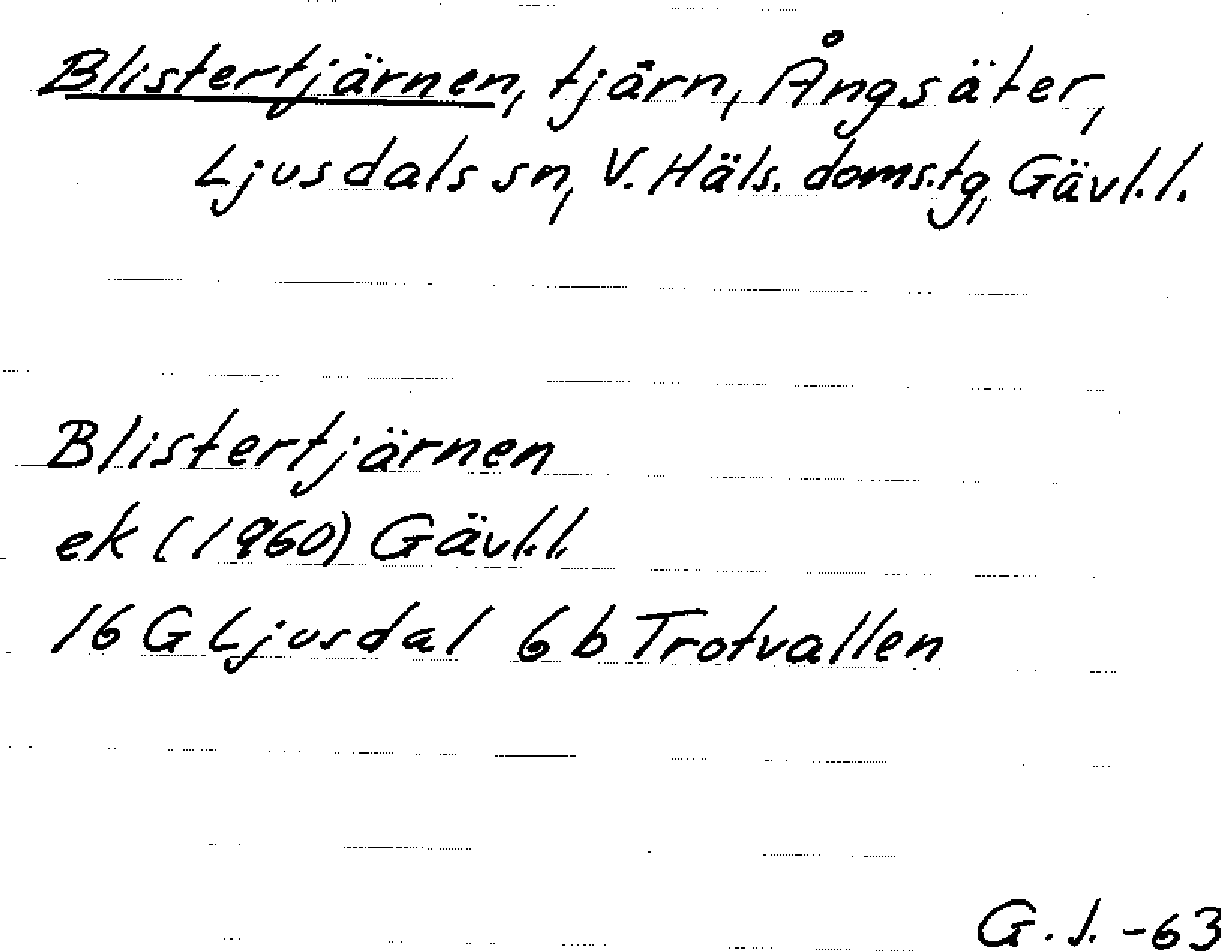 Blistertjärnen, tjärn, Ångsäter,
Ljusdals sn, V. Häls. doms.tg, Gävl.l.
Blistertjärnen
ek (1960) Gävl.l.
16 G Ljusdal 6 b Trotvallen
G. J. -63